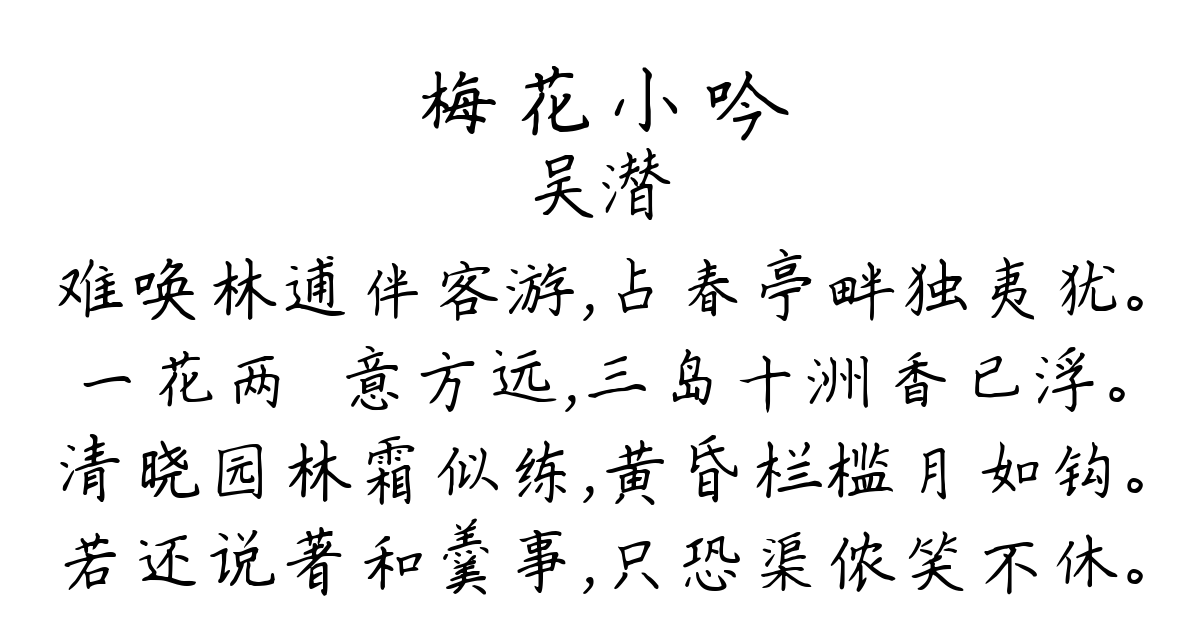 梅花小吟
吴潜
难唤林逋伴客游,占春亭畔独夷犹。
一花两 意方远,三岛十洲香已浮。
清晓园林霜似练,黄昏栏槛月如钩。
若还说著和羹事,只恐渠侬笑不休。